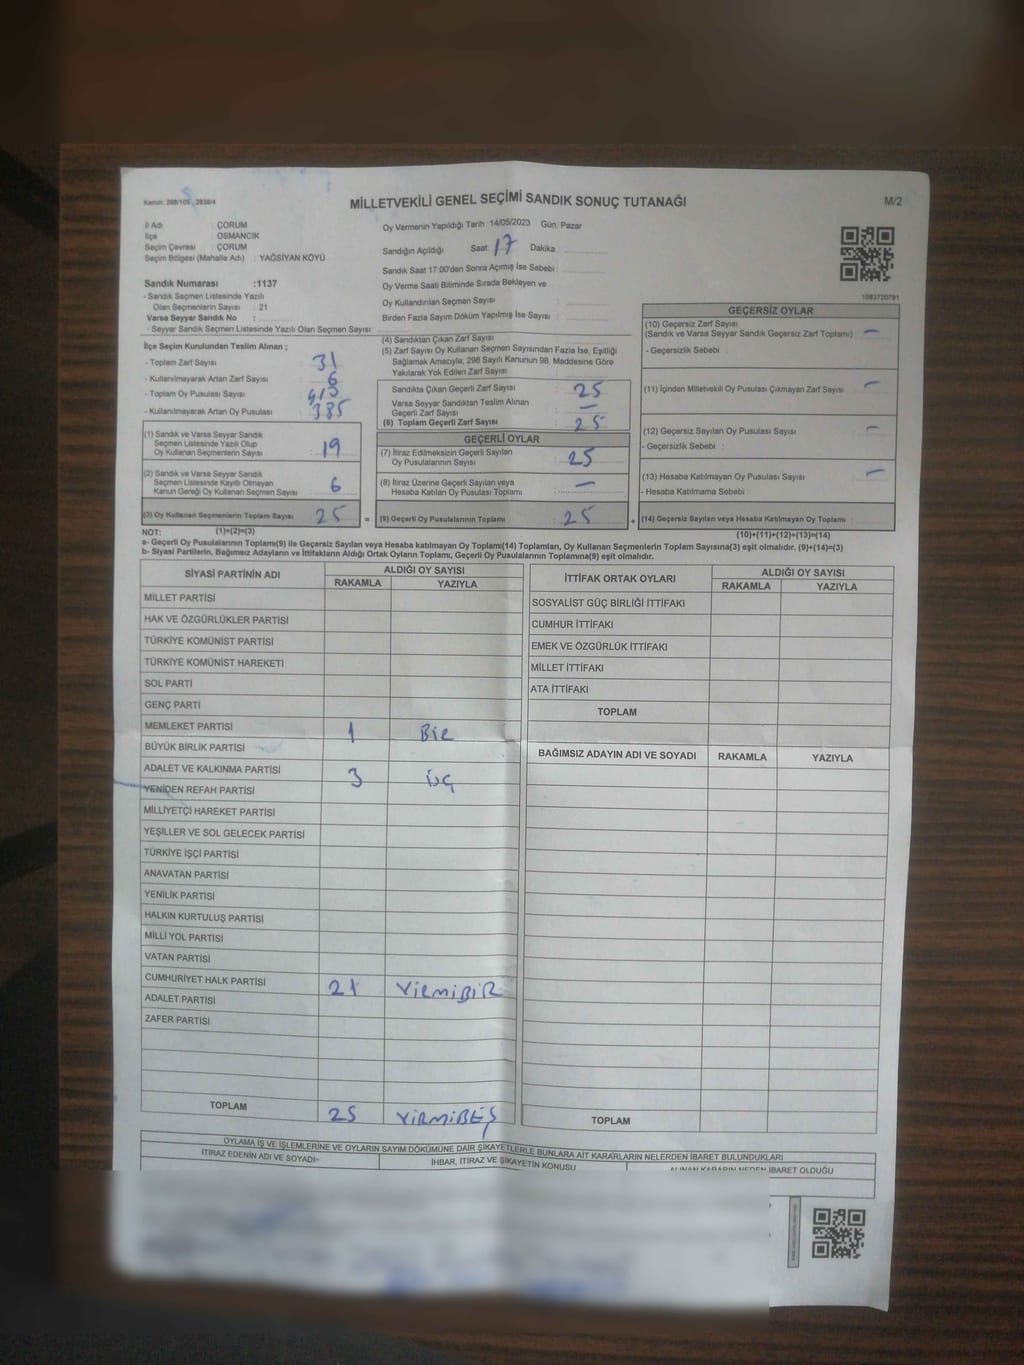 Kanun: 298/105 , 2839/4
MİLLETVEKİLİ GENEL SEÇİMİ SANDIK SONUÇ TUTANAĞI
M/2
İl Adı : ÇORUM
İlçe : OSMANCIK
Seçim Çevresi : ÇORUM
Seçim Bölgesi (Mahalle Adı) : YAĞSİYAN KÖYÜ
Sandık Numarası :1137
- Sandık Seçmen Listesinde Yazılı
Olan Seçmenlerin Sayısı : 21
Varsa Seyyar Sandık No :
- Seyyar Sandık Seçmen Listesinde Yazılı Olan Seçmen Sayısı:
Oy Vermenin Yapıldığı Tarih :14/05/2023 Gün: Pazar
Sandığın Açıldığı Saat: 17 Dakika
Sandık Saat 17:00'den Sonra Açımış İse Sebebi :
Oy Verme Saati Bitiminde Sırada Bekleyen ve
Oy Kullandırılan Seçmen Sayısı :
Birden Fazla Sayım Döküm Yapılmış İse Sayısı :
1083720791
İlçe Seçim Kurulundan Teslim Alınan ;
- Toplam Zarf Sayısı : 31
- Kullanılmayarak Artan Zarf Sayısı : 6
- Toplam Oy Pusulası Sayısı :
- Kullanılmayarak Artan Oy Pusulası : 385
(1) Sandık ve Varsa Seyyar Sandık
Seçmen Listesinde Yazılı Olup
Oy Kullanan Seçmenlerin Sayısı : 19
(2) Sandık ve Varsa Seyyar Sandık
Seçmen Listesinde Kayıtlı Olmayan
Kanun Gereği Oy Kullanan Seçmen Sayısı : 6
(3) Oy Kullanan Seçmenlerin Toplam Sayısı : 25 =
(4) Sandıktan Çıkan Zarf Sayısı :
(5) Zarf Sayısı Oy Kullanan Seçmen Sayısından Fazla İse, Eşitliği
Sağlamak Amacıyla; 298 Sayılı Kanunun 98. Maddesine Göre
Yakılarak Yok Edilen Zarf Sayısı :
Sandıkta Çıkan Geçerli Zarf Sayısı : 25
Varsa Seyyar Sandıktan Teslim Alınan
Geçerli Zarf Sayısı : —
(6) Toplam Geçerli Zarf Sayısı : 25
GEÇERLİ OYLAR
(7) İtiraz Edilmeksizin Geçerli Sayılan
Oy Pusulalarının Sayısı : 25
(8) İtiraz Üzerine Geçerli Sayılan veya
Hesaba Katılan Oy Pusulası Toplamı : —
(9) Geçerli Oy Pusulalarının Toplamı : 25 +
GEÇERSİZ OYLAR
(10) Geçersiz Zarf Sayısı
(Sandık ve Varsa Seyyar Sandık Geçersiz Zarf Toplamı) : —
- Geçersizlik Sebebi :
(11) İçinden Milletvekili Oy Pusulası Çıkmayan Zarf Sayısı : —
(12) Geçersiz Sayılan Oy Pusulası Sayısı : —
- Geçersizlik Sebebi :
(13) Hesaba Katılmayan Oy Pusulası Sayısı : —
- Hesaba Katılmama Sebebi :
(14) Geçersiz Sayılan veya Hesaba Katılmayan Oy Toplamı :
NOT: (1)+(2)=(3)
(10)+(11)+(12)+(13)=(14)
a- Geçerli Oy Pusulalarının Toplamı(9) ile Geçersiz Sayılan veya Hesaba katılmayan Oy Toplamı(14) Toplamları, Oy Kullanan Seçmenlerin Toplam Sayısına(3) eşit olmalıdır. (9)+(14)=(3)
b- Siyasi Partilerin, Bağımsız Adayların ve İttifakların Aldığı Ortak Oyların Toplamı, Geçerli Oy Pusulalarının Toplamına(9) eşit olmalıdır.
SİYASİ PARTİNİN ADI
ALDIĞI OY SAYISI
RAKAMLA YAZIYLA
MİLLET PARTİSİ
HAK VE ÖZGÜRLÜKLER PARTİSİ
TÜRKİYE KOMÜNİST PARTİSİ
TÜRKİYE KOMÜNİST HAREKETİ
SOL PARTİ
GENÇ PARTİ
MEMLEKET PARTİSİ 1 Bir
BÜYÜK BİRLİK PARTİSİ
ADALET VE KALKINMA PARTİSİ 3 üç
YENİDEN REFAH PARTİSİ
MİLLİYETÇİ HAREKET PARTİSİ
YEŞİLLER VE SOL GELECEK PARTİSİ
TÜRKİYE İŞÇİ PARTİSİ
ANAVATAN PARTİSİ
YENİLİK PARTİSİ
HALKIN KURTULUŞ PARTİSİ
MİLLİ YOL PARTİSİ
VATAN PARTİSİ
CUMHURİYET HALK PARTİSİ 21 YİRMİBİR
ADALET PARTİSİ
ZAFER PARTİSİ
TOPLAM 25 YİRMİBEŞ
İTTİFAK ORTAK OYLARI
ALDIĞI OY SAYISI
RAKAMLA YAZIYLA
SOSYALİST GÜÇ BİRLİĞİ İTTİFAKI
CUMHUR İTTİFAKI
EMEK VE ÖZGÜRLÜK İTTİFAKI
MİLLET İTTİFAKI
ATA İTTİFAKI
TOPLAM
BAĞIMSIZ ADAYIN ADI VE SOYADI RAKAMLA YAZIYLA
TOPLAM
OYLAMA İŞ VE İŞLEMLERİNE VE OYLARIN SAYIM DÖKÜMÜNE DAİR ŞİKAYETLERLE BUNLARA AİT KARARLARIN NELERDEN İBARET BULUNDUKLARI
İTİRAZ EDENİN ADI VE SOYADI
İHBAR, İTİRAZ VE ŞİKAYETİN KONUSU
ALINAN KARARIN NEDEN İBARET OLDUĞU